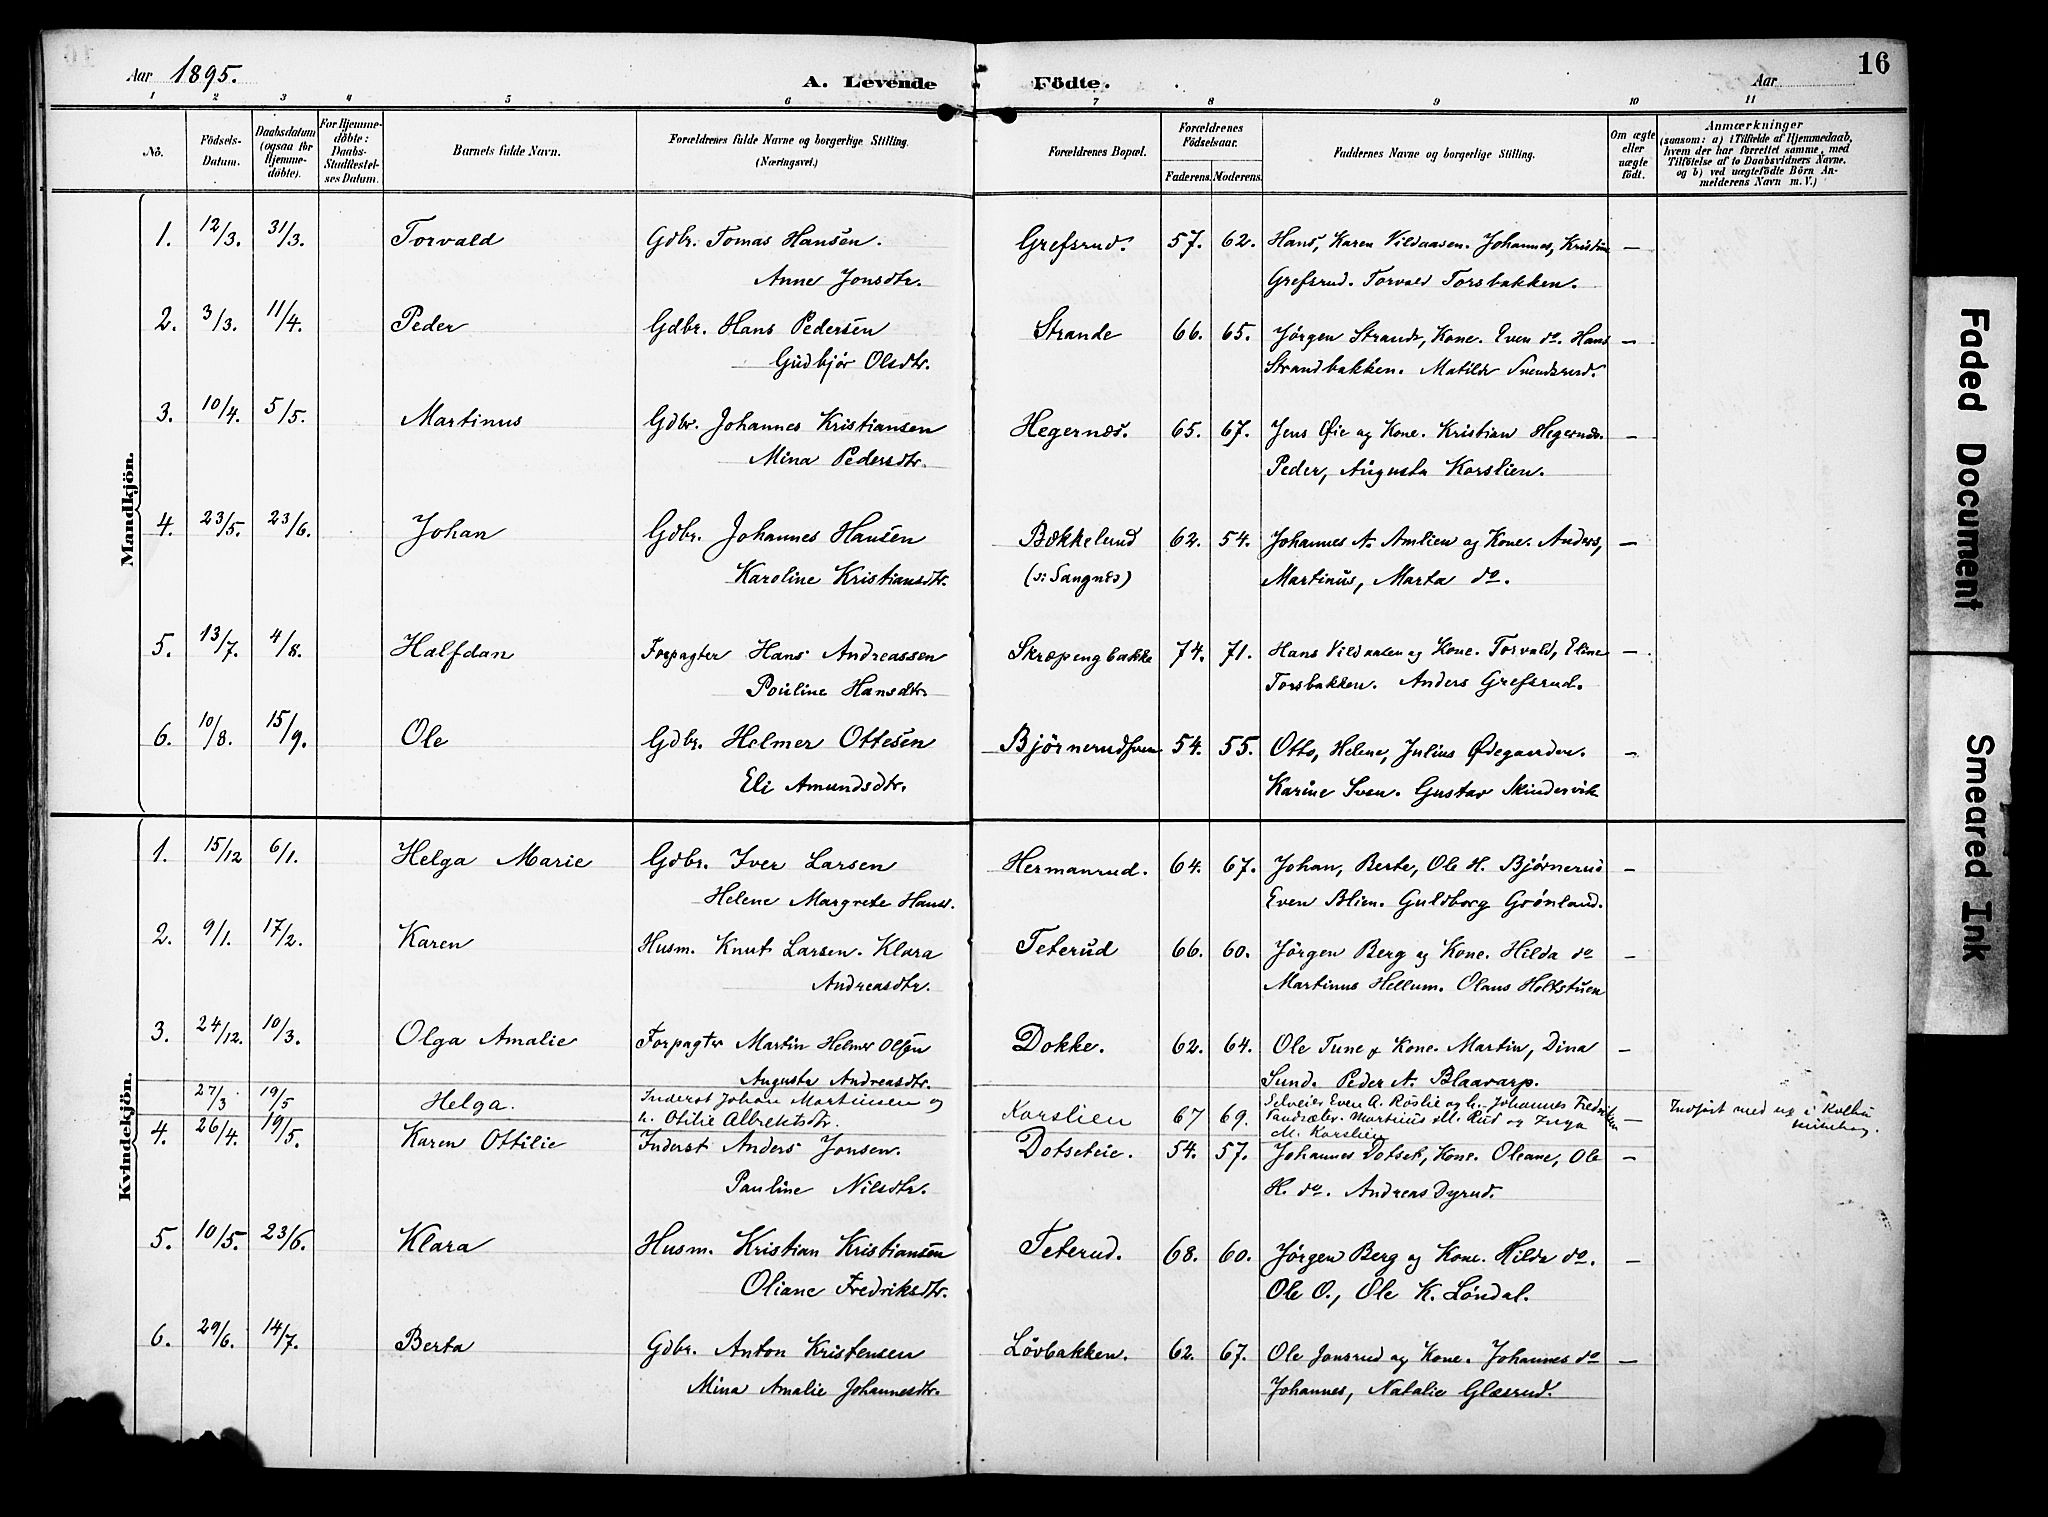 Aar 1895.
A. Levende Födte.
Aar
16
1 2 3 4 5 6 7 8 9 10 11
No.
Födsels-Datum.
Daabsdatum (ogsaa for Hjemme-döbte).
For Hjemme-döbte: Daabs-Stadfæstel-ses Datum.
Barnets fulde Navn.
Forældrenes fulde Navne og borgerlige Stilling. (Næringsvei.)
Forældrenes Bopæl.
Forældrenes Födselsaar.
Faderens. Moderens.
Faddernes Navne og borgerlige Stilling.
Om ægte eller uægte födt.
Anmærkninger
(saasom: a) i Tilfælde af Hjemmedaab, hvem der har forrettet samme, med Tilföielse af to Daabsvidners Navne, og b) ved uægtefödte Börn Anmelderens Navn m. V.)
Mandkjön.
1. 12/3. 31/3. Torvald Gdbr. Tomas Hansen. Grefsrud. 57. 62. Hans, Karen Vildaasen. Johannes, Kristine —
Anne Jonsdtr. Grefsrud. Torvald Torsbakken.
2. 3/3. 11/4. Peder Gdbr. Hans Pedersen Strande 66. 65. Jørgen Strande, Kone. Even do. Hans —
Gudbjør Olsdtr. Strandbakken. Matilde Svendsrud.
3. 10/4. 5/5. Martinus Gdbr. Johannes Kristiansen Hegernæs. 65. 67. Jens Øie og Kone. Kristian Hegernæs. —
Mina Pedersdtr. Peder, Augusta Korslien.
4. 23/5. 23/6. Johan Gdbr. Johannes Hansen Bækkelund 62. 54. Johannes A. Amlien og Kone. Anders, —
Karoline Kristiansdtr. (s: Sangnæs) Martinus, Marta do.
5. 13/7. 4/8. Halfdan Forpagter Hans Andreassen Skræpengbakke 74. 71. Hans Vildaasen og Kone. Torvald, Eline —
Pouline Hansdtr. Torsbakken. Anders Grefsrud.
6. 10/8. 15/9. Ole Gdbr. Helmer Ottesen 54. 55. Otto, Helene, Julius Ødegaarden. —
Eli Amundsdtr. Karine Sveen. Gustav Skindervik
Kvindekjön.
1. 15/12 6/1. Helga Marie Gdbr. Iver Larsen Hermanrud. 64. 67. Johan, Berte, Ole H. Bjørnerud —
Helene Margrete Hansd. Even Blien. Guldborg Grønland.
2. 9/1. 17/2. Karen Husm. Knut Larsen. Klara Teterud 66. 60. Jørgen Berg og Kone. Hilda do —
Andreasdtr. Martinus Hellum. Olaus Holtstuen
3. 24/12. 10/3. Olga Amalie Forpagter Martin Helmer Olsen Dokke. 62. 64. Ole Tune & Kone. Martin, Dina —
Augusta Andreasdtr. Sund. Peder A. Blaavarp.
27/3 19/5 Helga. Inderst Johan Martinsen og Korslien 67 69. Selveier Even A. Røslie og h. Johannes Fredriksen —
h. Otilie Albrektsdtr. Martinus M. Rud og Inga
M. Korslien
Indført med no i
4. 26/4. 19/5. Karen Ottilie Inderst Anders Jonsen. Dotseteie. 54. 57. Johannes Dotset, Kone. Oleane, Ole —
Pauline Nilsdtr. H. do. Andreas Dyrud.
5. 10/5. 23/6. Klara Husm. Kristian Kristiansen Teterud. 68. 60. Jørgen Berg og Kone. Hilda do. —
Oliane Fredriksdtr. Ole O., Ole K. Løndal.
6. 29/6. 14/7. Berta Gdbr. Anton Kristensen Løvbakken. 62. 67. Ole Jonsrud og Kone. Johannes do —
Mina Amalie Johannesdtr. Johannes, Natalie Glæsrud.
Faded Document
Smeared Ink